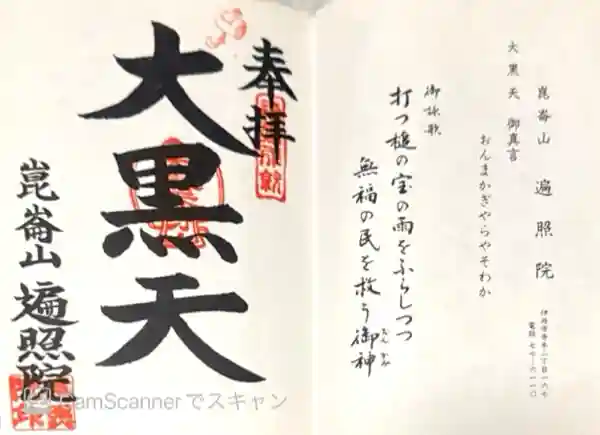 奉拝
大黒天
崑崙山 遍照院
CamScannerでスキャン
崑崙山 遍照院
伊丹市寺本二丁目一六七
大黒天 御真言
おんまかぎやらやそわか
御詠歌
打つ槌の宝の雨をふらしつつ
無福の民を救う御神